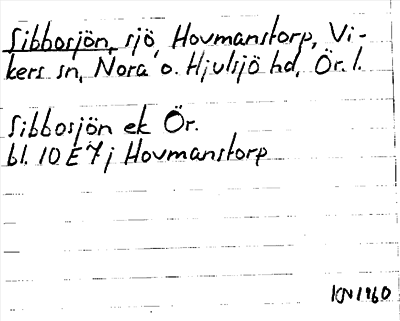 Sibbosjön, sjö, Hovmanstorp, Vi-
kers sn, Nora o. Hjulsjö hd, Ör. l.
Sibbosjön ek Ör.
bl. 10 E 7 j Hovmanstorp
KN 1960